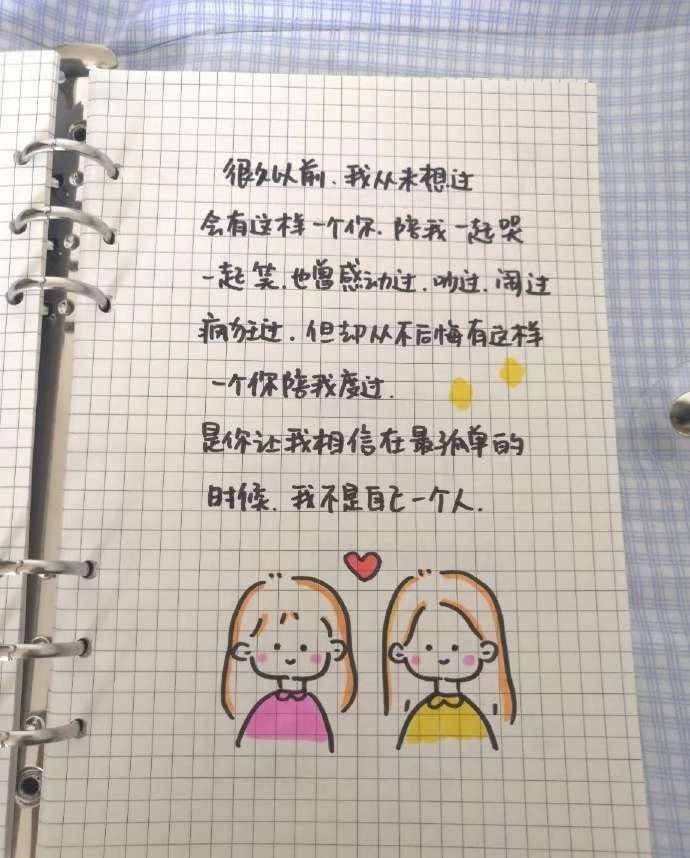 很久以前、我从未想过
会有这样一个你.陪我一起哭
一起笑.也曾感动过.吵过.闹过
疯狂过.但却从不后悔有这样
一个你陪我度过.
是你让我相信在最孤单的
时候.我不是自己一个人.